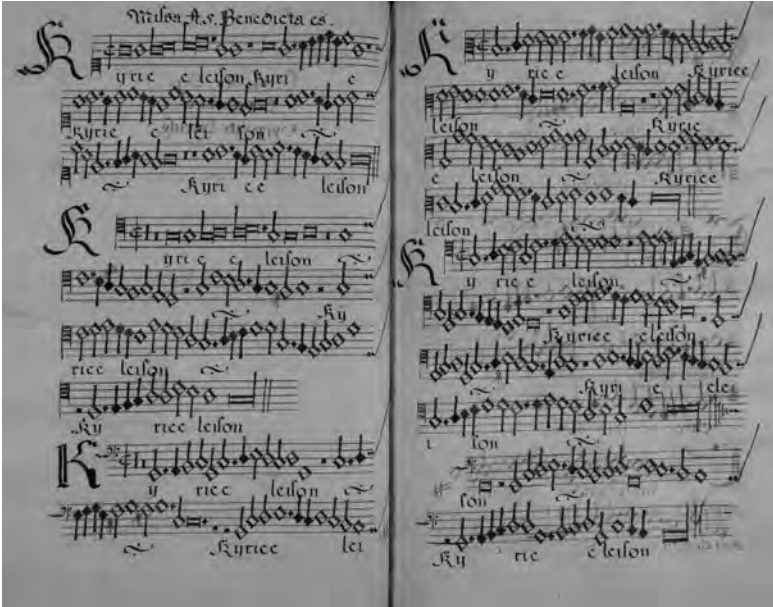 Missa A.5. Benedicta es.
K
yrie e leison Kyri e
Kyrie e lei son
Kyri e e leison
K
yri e e leison
Ky
riee leison
Ky riee leison
K
y riee leison
Kyriee lei
K
y rie e leison Kyriee
leison Kyrie
e leison Kyriee
leison
K
y rie e leison
Kyriee eleison
Kyri e elei
i son
son
Ky rie e leison